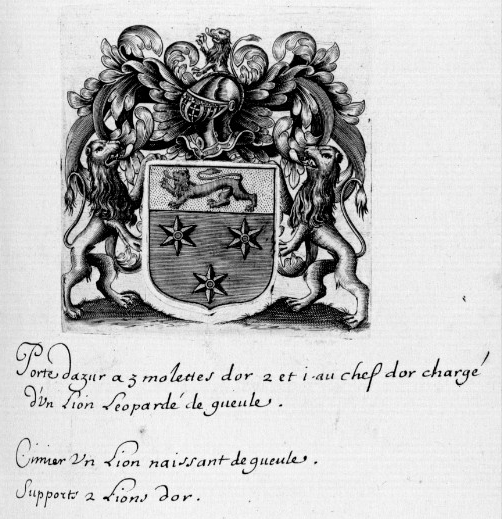 Porte dazur a 3 molettes dor 2 et i. au chef dor chargé
d'vn Lion Leopardé de gueule.
Cimier Vn Lion naissant de gueule.
Supports 2 Lions dor.